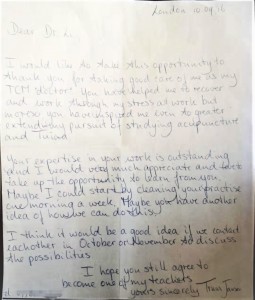 London 10.09.16
Dear Dr L.
I would like to take this opportunity to
thank you for taking good care of me as my
TCM doctor! You have helped me to recover
and work through my stress at work but
moreov you have inspired me even to greater
extend my pursuit of studying acupuncture
and Tuina.
Your expertise in your work is outstanding
and I would very much appreciate and love to
take up the opportunity to learn from you.
Maybe I could start by cleaning your practise
one morning a week. Maybe you have another
idea of how we can do this.
I think it would be a good idea if we called
eachother in October or November to discuss
the possibilities
I hope you still agree to
become one of my teachers
yours sincerely